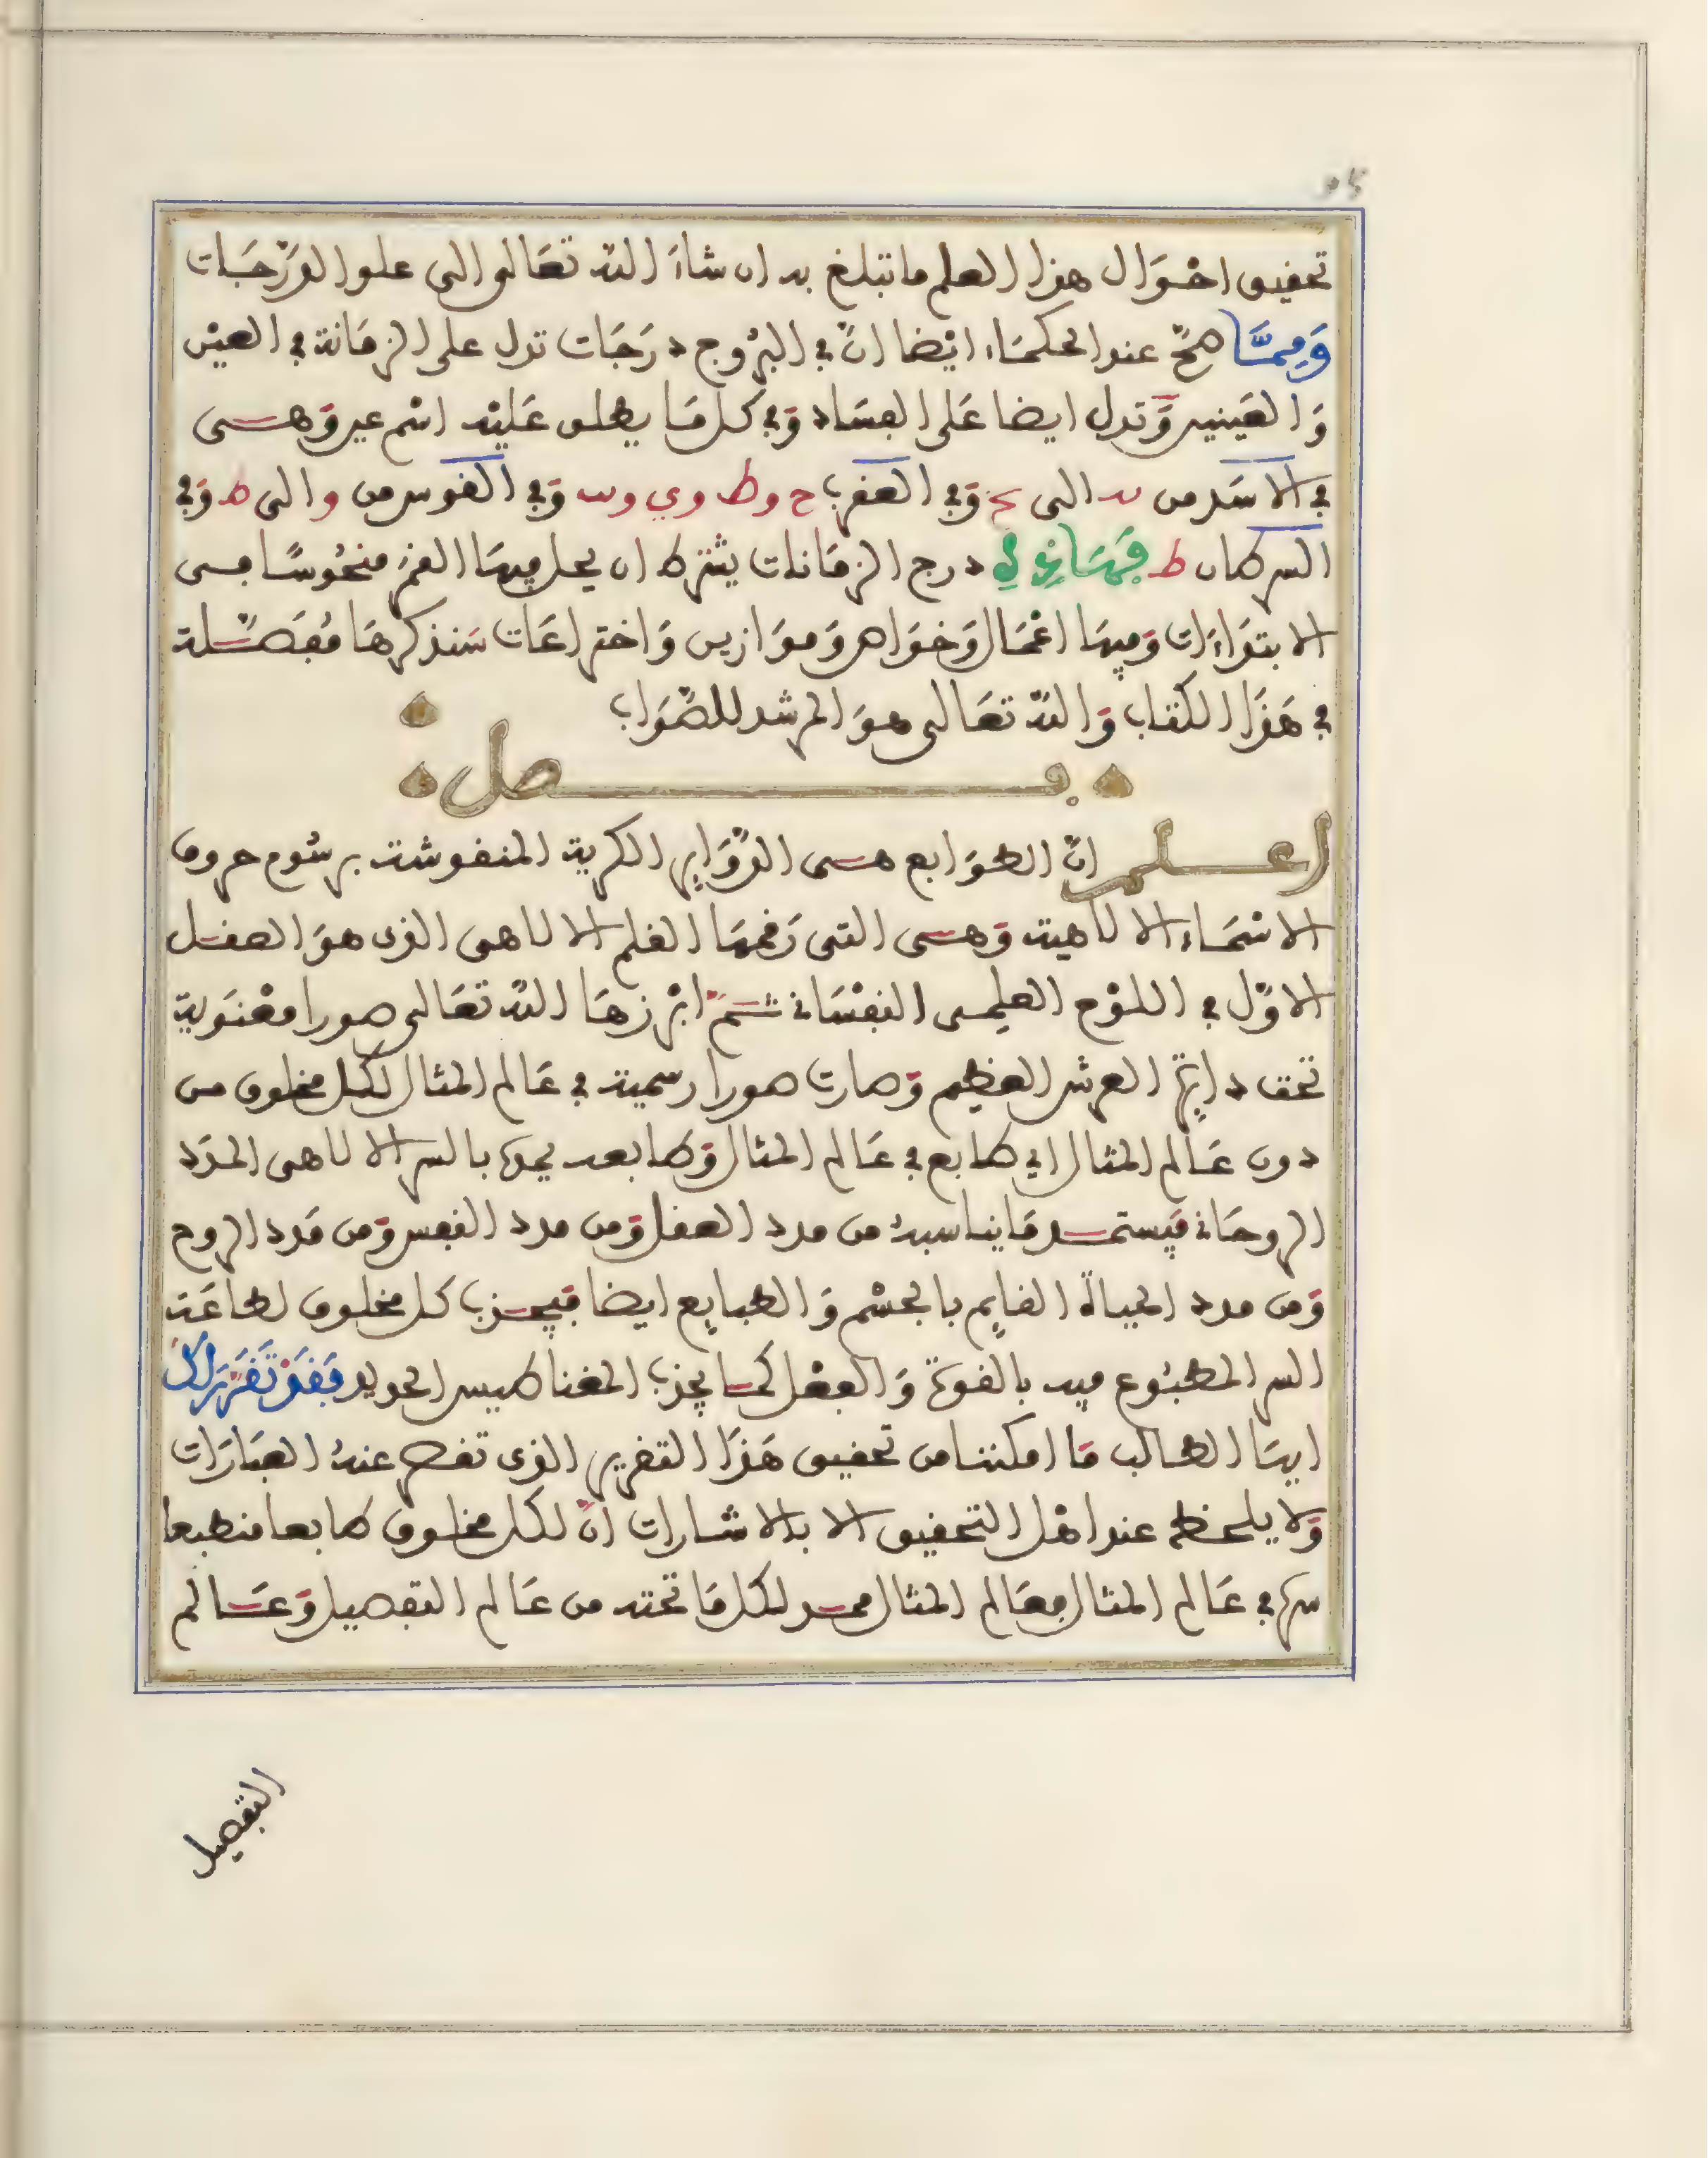 تحقيق احْوَال هذا العلم ما تبلغ به ان شاءَ اللّه تعَالى الى علو الدّرَجَات
وَمِمَّا صحَّ عند الحكمَاء ايْضا انّ في البرُوج درَجَات تدل على الزمَانة في العيْن
وَالعَينين وَتدل ايضا عَلى الفسَاد وَفي كل مَا يطلق عَليْه اسْم عين وَهى
في الاسَد من الى وَفي العقرب ح وط وي وَفي القوس من و الى ط وَفي
السرطان ط درج الزمَانات يشترط ان يحل فيهَا القمر منحُوسًا فى
الابتدَاءَات وَفيهَا اعْمَال وَخوَاص وَموَازين وَاختراعَات سَنذكرهَا مُفَصَّلة
في هَذا الكتاب وَاللّه تعَالى هوَ المرشد للصَّوَاب
فصل
اعلم انّ الطوَابع هى الدّوَاير الكرية المنقوشة برسُوم حروف
الاسْمَاء الالاهية وَهى التى رَقمهَا القلم الالاهى الذى هوَ العقل
الاوّل في اللوْح العلمى النفْسَانى ثمّ ابْرزهَا اللّه تعَالى صورا معْنَوية
تحت دايرة العرش العظيم وَصارت صورا رسمية في عَالم المثال لكل مخلوق من
دون عَالم المثال اي طابع في عَالم المثال وَطابعه يمده بالسر الالاهى المدَد
الروحَانى فيستمد مَا يناسبهُ من مدد العقل وَمن مدد النفس وَمن مَدد الروح
وَمن مدد الحياة القايم بالجسْم وَالطبايع ايضا فيجذب كل مخلوق لطاعَة
السر المطبُوع فيه بالقوة وَالفعْل كما يجذب المغناطيس الحديد فَقَدْ تَقَرَّرَ لَكَ
ايهَا الطالب مَا امكننا من تحقيق هَذا التقرير الذى تقصر عنهُ العبَارَات
وَلا يلحظ عند اهْل التحقيق الا بالاشارات انّ لكل مخلوق طابعا منطبعا
سره في عَالم المثال فعَالم المثال ممد لكل مَا تحته من عَالم التفصيل وَعَالم
التفصيل